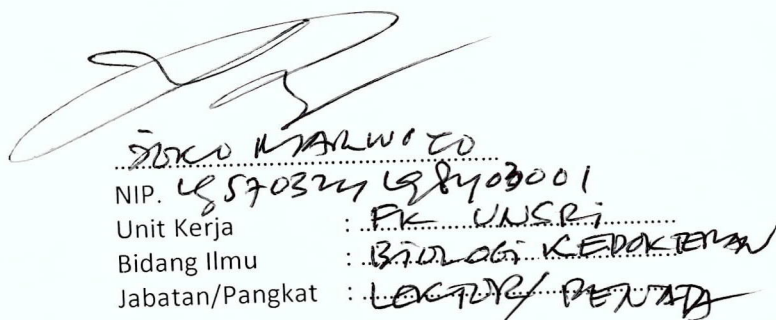 JOKO MARWOTO
NIP. 19570324198403001
Unit Kerja : FK UNSRi
Bidang Ilmu : BiOLOGi KEDOKTERAN
Jabatan/Pangkat : LEKTOR/ PENATA